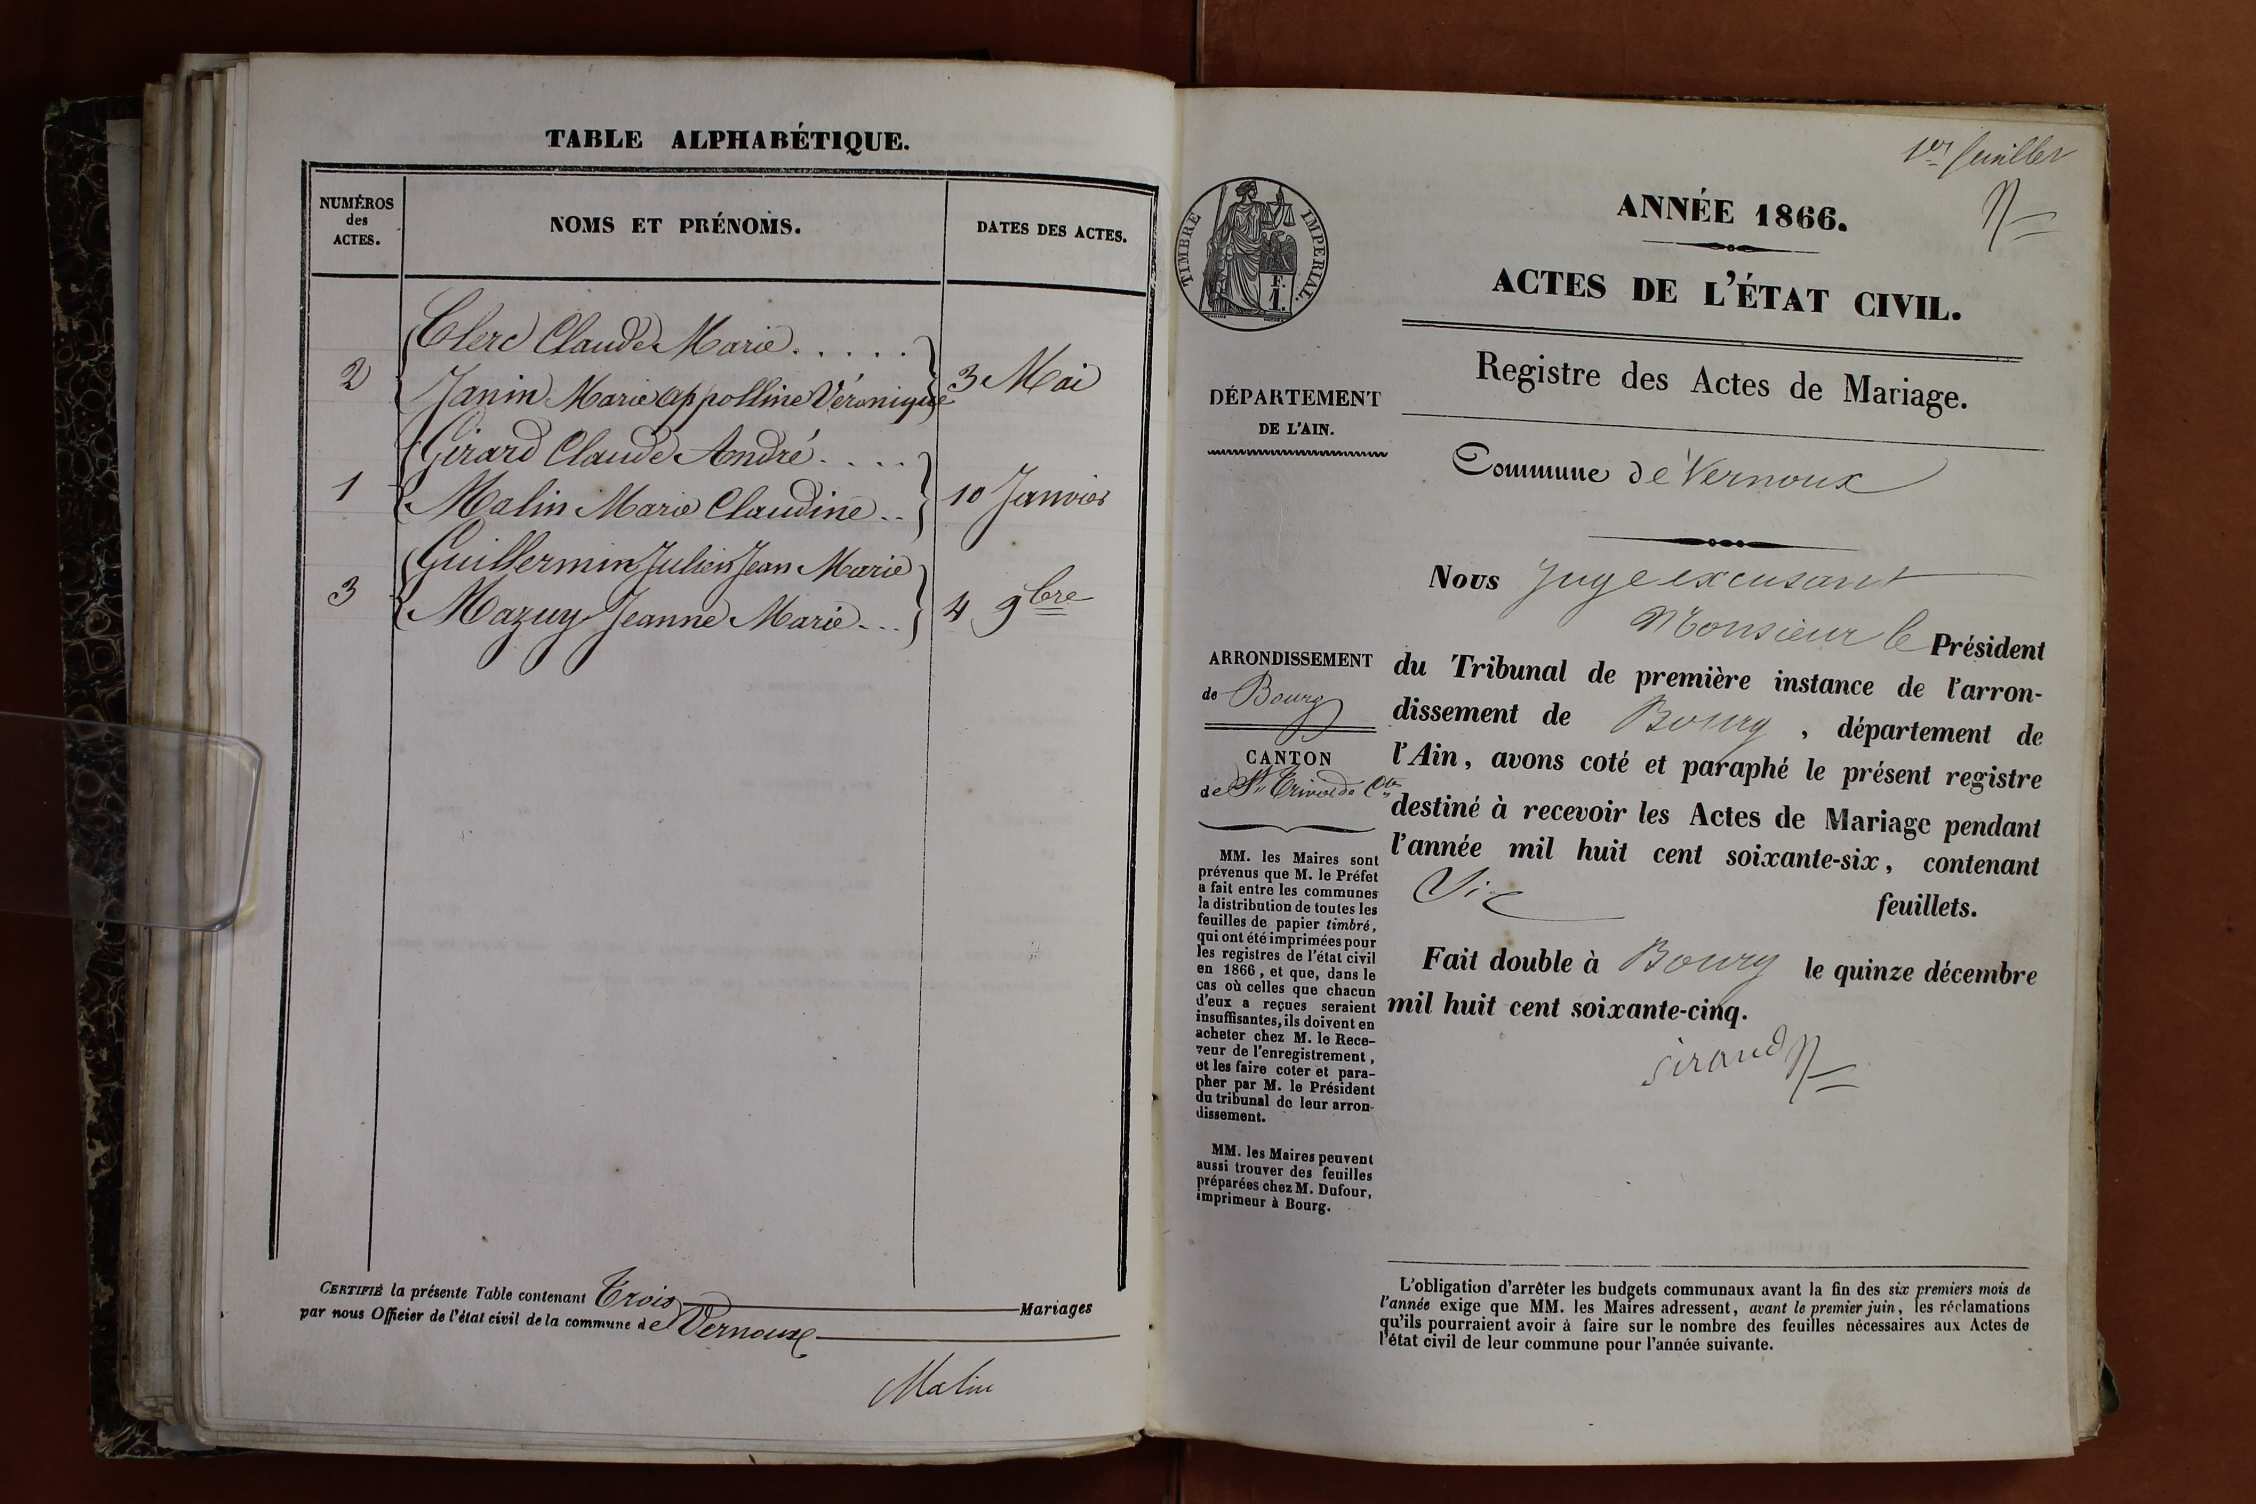 TABLE ALPHABÉTIQUE.
NUMÉROS
des
ACTES.
NOMS ET PRÉNOMS.
DATES DES ACTES.
Clerc Claude Marie . . . . .
2
Janin Marie appolline Véronique
3 Mai
Girard Claude André . . . .
1
Malin Marie Claudine . .
10 Janvier
Guillermin Julien Jean Marie
3
Mazuy Jeanne Marie . . .
4 9bre
CERTIFIÉ la présente Table contenant Trois Mariages
par nous Officier de l'état civil de la commune de Vernoux
Malin
1er feuillet
TIMBRE IMPÉRIAL.
F.
1.
ANNÉE 1866.
ACTES DE L'ÉTAT CIVIL.
Registre des Actes de Mariage.
DÉPARTEMENT
DE L'AIN.
Commune de Vernoux
Nous Juge excusant
Monsieur le Président
du Tribunal de première instance de l'arron-
dissement de Bourg, département de
l'Ain, avons coté et paraphé le présent registre
destiné à recevoir les Actes de Mariage pendant
l'année mil huit cent soixante-six, contenant
Six feuillets.
Fait double à Bourg le quinze décembre
mil huit cent soixante-cinq.
Sirand
ARRONDISSEMENT
de Bourg
CANTON
de St Trivier de Ctes
MM. les Maires sont
prévenus que M. le Préfet
a fait entre les communes
la distribution de toutes les
feuilles de papier timbré,
qui ont été imprimées pour
les registres de l'état civil
en 1866, et que, dans le
cas où celles que chacun
d'eux a reçues seraient
insuffisantes, ils doivent en
acheter chez M. le Rece-
veur de l'enregistrement,
et les faire coter et para-
pher par M. le Président
du tribunal de leur arron-
dissement.
MM. les Maires peuvent
aussi trouver des feuilles
préparées chez M. Dufour,
imprimeur à Bourg.
L'obligation d'arrêter les budgets communaux avant la fin des six premiers mois de
l'année exige que MM. les Maires adressent, avant le premier juin, les réclamations
qu'ils pourraient avoir à faire sur le nombre des feuilles nécessaires aux Actes de
l'état civil de leur commune pour l'année suivante.